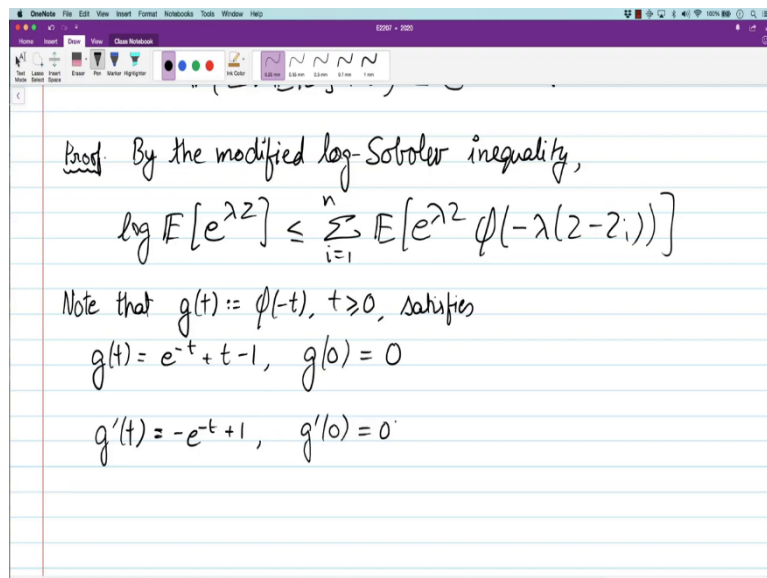 OneNote File Edit View Insert Format Notebooks Tools Window Help
100%
E2207 - 2020
Home Insert Draw View Class Notebook
Text Mode Lasso Select Insert Space Eraser Pen Marker Highlighter Ink Color 0.25 mm 0.35 mm 0.5 mm 0.7 mm 1 mm
Proof. By the modified log-Sobolev inequality,
log E[e^{λZ}] ≤ Σ_{i=1}^{n} E[e^{λZ} φ(-λ(Z-Z_i))]
Note that g(t) := φ(-t), t≥0, satisfies
g(t) = e^{-t} + t - 1, g(0) = 0
g'(t) = -e^{-t} + 1, g'(0) = 0